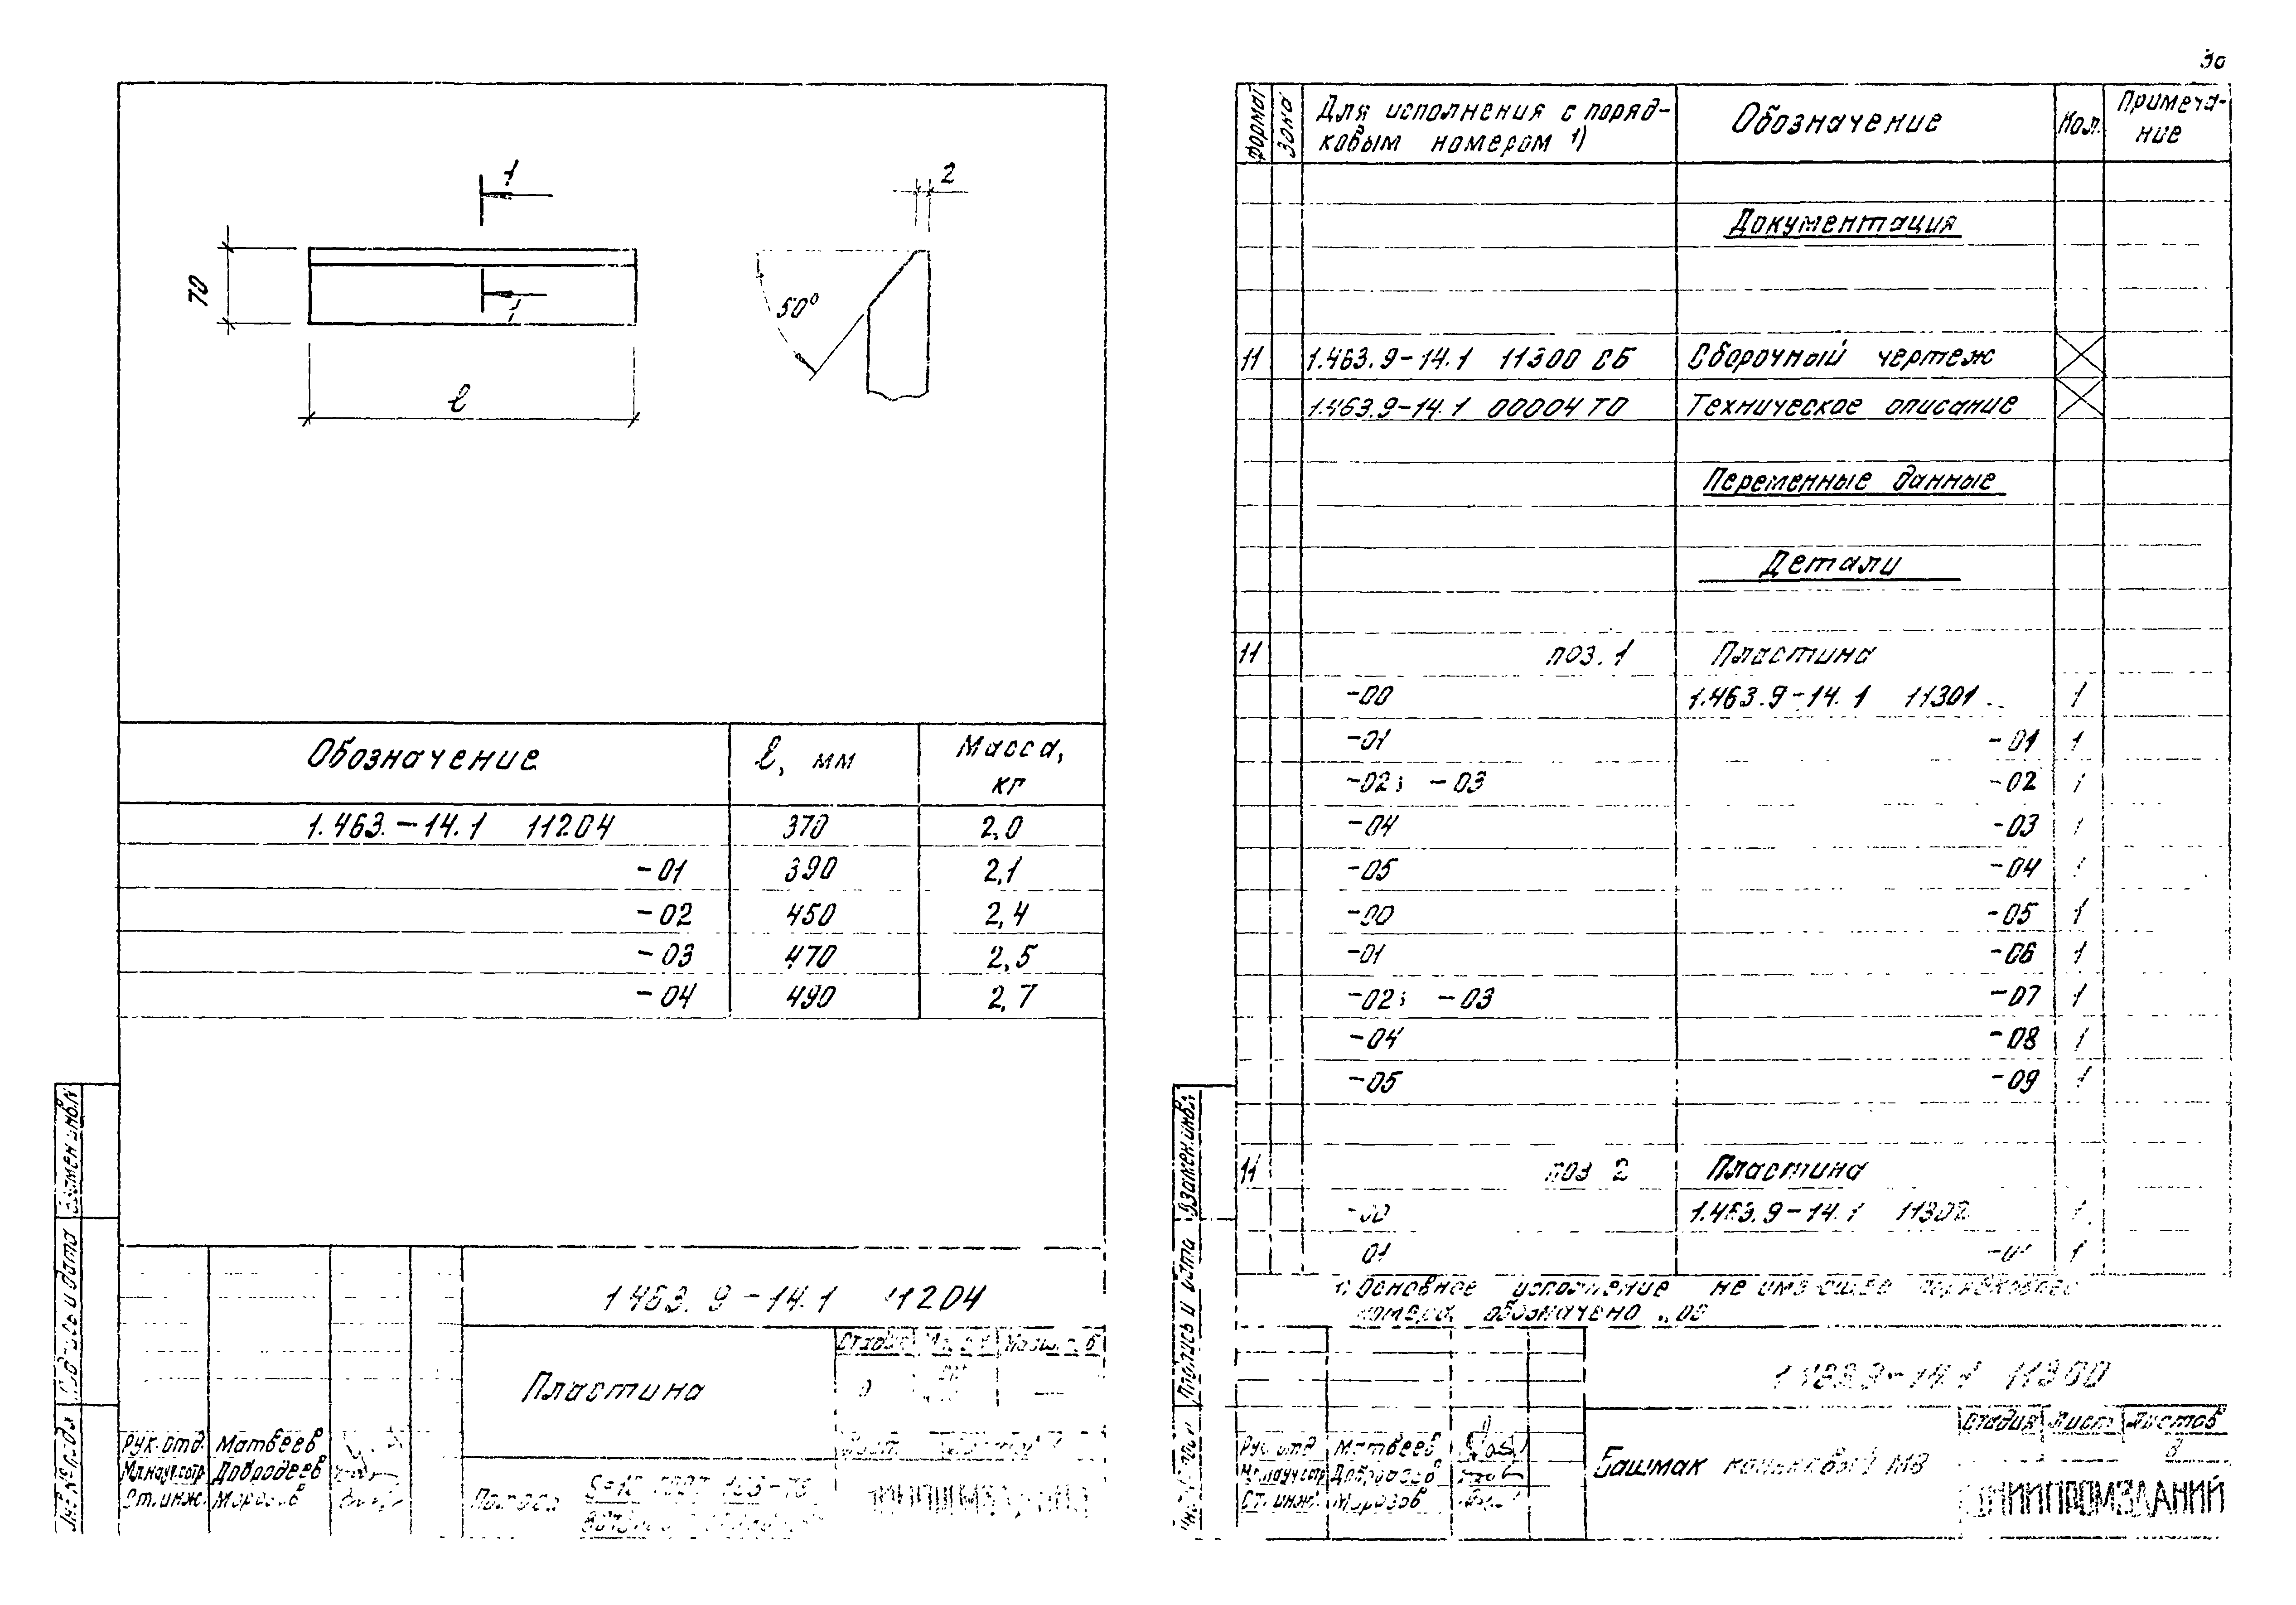 30
1
2
70
1
50°
ℓ
Обозначение ℓ, мм Масса, кг
1.463.-14.1 11204 370 2,0
-01 390 2,1
-02 450 2,4
-03 470 2,5
-04 490 2,7
Взамен инв.N
Подпись и дата
1463.9-14.1 11204
Пластина
Стадия
Рук.отд. Матвеев
Мл.науч.сотр Добродеев
Ст.инж. Морозов
Полоса
Формат Зона Для исполнения с поряд-
ковым номером 1) Обозначение Кол. Примеча-
ние
Документация
11 1.463.9-14.1 11300 СБ Сборочный чертеж
1.463.9-14.1 00004 ТО Техническое описание
Переменные данные
Детали
11 поз. 1 Пластина
-00 1.463.9-14.1 11301 1
-01 -01 1
-02; -03 -02 1
-04 -03 1
-05 -04 1
-00 -05 1
-01 -06 1
-02; -03 -07 1
-04 -08 1
-05 -09 1
11 поз 2 Пластина
-00 1.463.9-14.1 11302 1
01 1
1) Основное исполнение не
номера обозначено „00
Взамен инв.N
Подпись и дата
1.463.9-14.1 11300
Башмак коньковый М8
Стадия Лист Листов
Рук.отд Матвеев
Мл.науч.сотр Добродеев
Ст.инж. Морозов
ЦНИИПРОМЗДАНИЙ